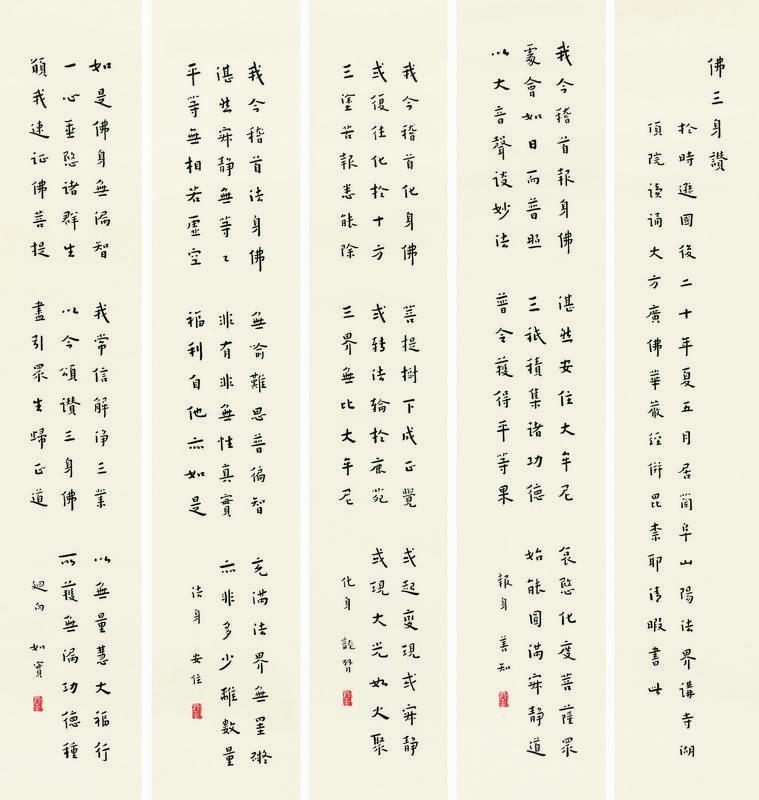 佛三身讚
於時遜國後二十年夏五月居阜山陽法界講寺湖
頂院读诵大方廣佛華嚴经併毘柰耶清暇書此
我今稽首報身佛 湛然安住大牟尼 哀愍化度菩薩眾
處會如日而普照 三祇積集諸功德 始能圓滿寂静道
以大音聲谈妙法 普令獲得平等果 報身 善知
我今稽首化身佛 菩提樹下成正覺 或起變現或寂静
或復往化於十方 或转法輪於鹿苑 或現大光如火聚
三塗苦報悉能除 三界無比大牟尼 化身
我今稽首法身佛 無喻難思普徧智 充滿法界無罣礙
湛然寂静無等々 非有非無性真實 亦非多少離數量
平等無相若虛空 福利自他亦如是 法身 安住
如是佛身無漏智 我常信解浄三業 以無量慧大福行
一心垂愍諸群生 以今頌讚三身佛 所獲無漏功德種
願我速证佛菩提 盡引眾生歸正道 迴向 如實